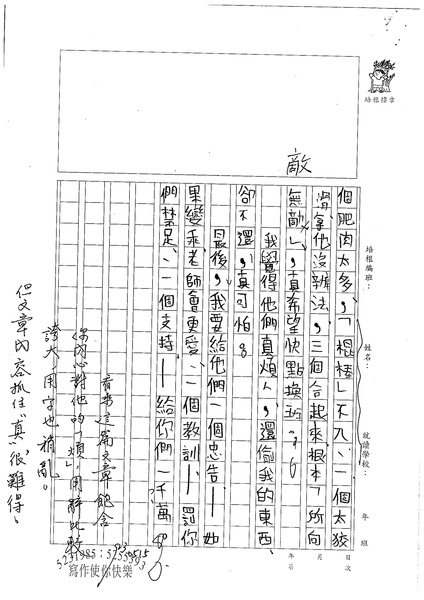 培根標章
敵
培根編班：
姓名：
就讀學校：
年 班
個肥肉太多，「棍棒」不入、一個太狡
滑拿他沒辦法，三個合起來根本「所向
無敵」，真希望快點換班。
我覺得他們真煩人，還偷我的東西
卻不還，真可怕。
最後，我要給他們一個忠告——如
果變乖老師會更愛、一個教訓——罰你
們禁足、一個支持——給你們一千萬。
看來這篇文章飽含
你內心對他的「煩」，用辭比較
誇大，用字也稍亂。
但文章內容抓住"真"，很難得。
寫作使你快樂